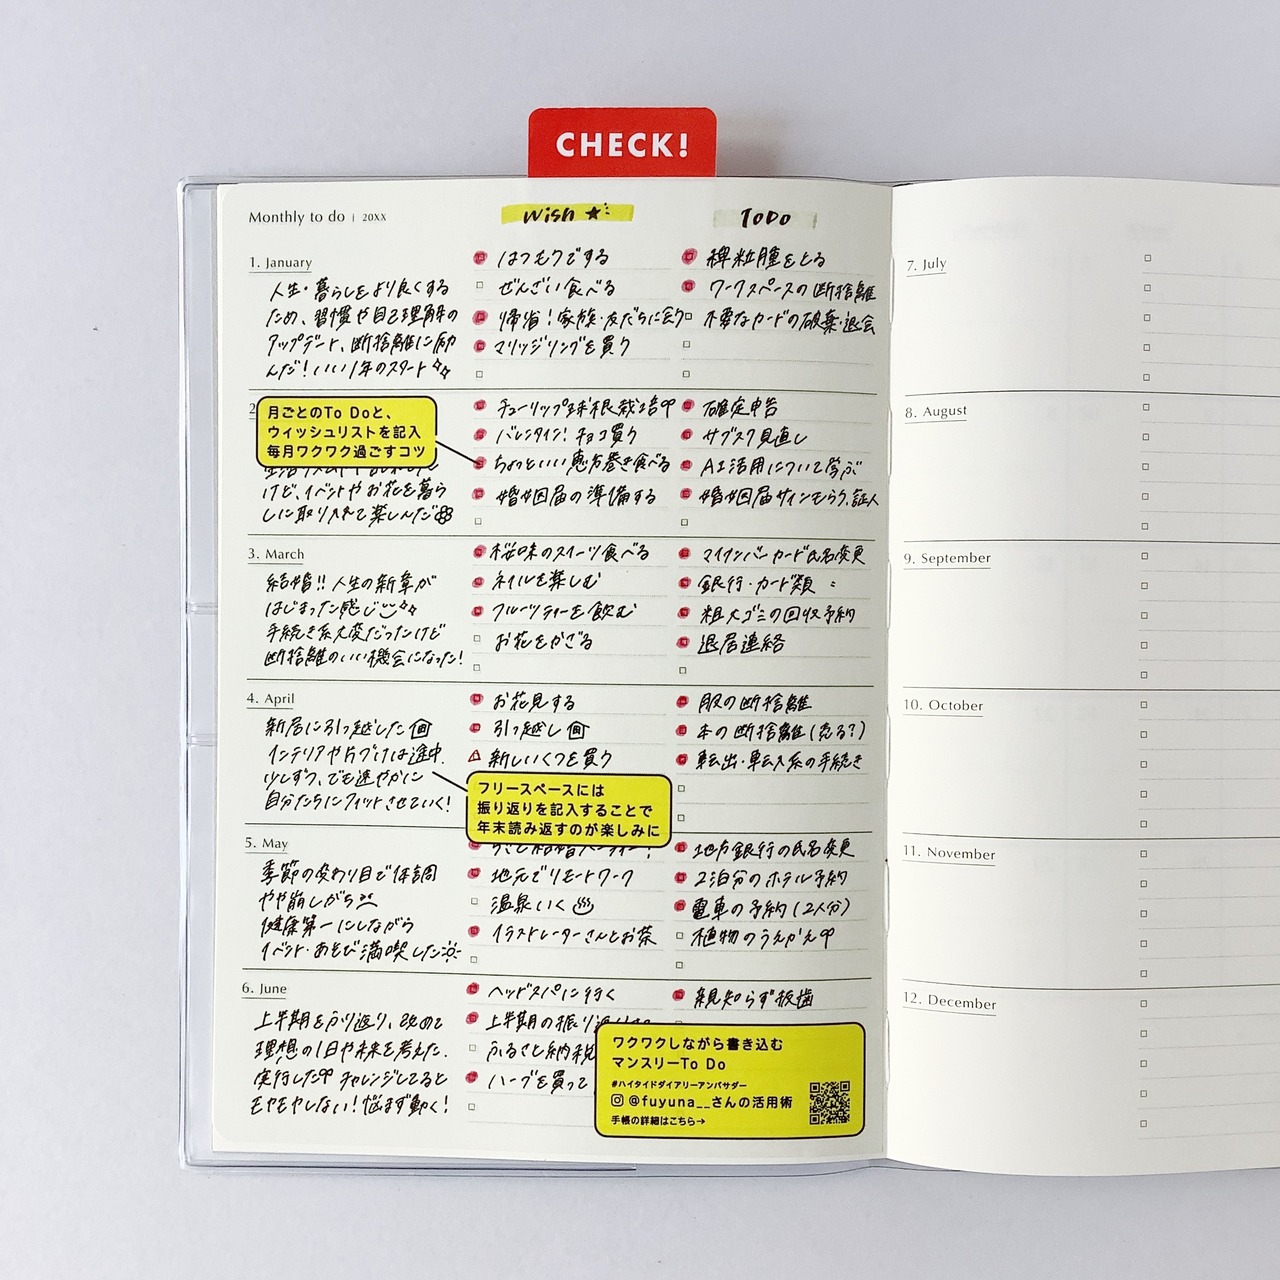 CHECK!
Monthly to do | 20XX
Wish ★
ToDo
1. January
人生・暮らしをより良くする
ため、習慣や自己理解の
アップデート、断捨離に励
んだ!いい1年のスタート
はつもうでする
ぜんざい食べる
帰省!家族・友だちに会う
マリッジリングを買う
稗粒腫をとる
ワークスペースの断捨離
不要なカードの破棄・退会
2
月ごとのTo Doと、
ウィッシュリストを記入
毎月ワクワク過ごすコツ
けど、イベントやお花を暮ら
しに取り入れて楽しんだ
チューリップ球根栽培
バレンタイン!チョコ買う
ちょっといい恵方巻き食べる
婚姻届の準備する
確定申告
サブスク見直し
AI活用について学ぶ
婚姻届サインもらう、証人
3. March
結婚!!人生の新章が
はじまった感じ
手続き系大変だったけど
断捨離のいい機会になった!
桜味のスイーツ食べる
ネイルを楽しむ
フルーツティーを飲む
お花をかざる
マイナンバーカード氏名変更
銀行・カード類 〃
粗大ゴミの回収予約
退居連絡
4. April
新居に引っ越した
インテリアや片づけは途中.
少しずつ、でも速やかに
自分たちにフィットさせていく!
お花見する
引っ越し
新しいくつを買う
服の断捨離
本の断捨離(売る?)
転出・転入系の手続き
フリースペースには
振り返りを記入することで
年末読み返すのが楽しみに
5. May
季節の変わり目で体調
やや崩しがち
健康第一にしながら
イベント・あそび満喫した
地元でリモートワーク
温泉いく
イラストレーターさんとお茶
地方銀行の氏名変更
2泊分のホテル予約
電車の予約(2人分)
植物のうえかえ
6. June
上半期をふり返り、改めて
理想の1日や未来を考えた.
実行した チャレンジしてると
モヤモヤしない!悩まず動く!
ヘッドスパに行く
上半期の振り返り
ふるさと納税
ハーブを買って
親知らず抜歯
ワクワクしながら書き込む
マンスリーTo Do
#ハイタイドダイアリーアンバサダー
@fuyuna__さんの活用術
手帳の詳細はこちら→
7. July
8. August
9. September
10. October
11. November
12. December